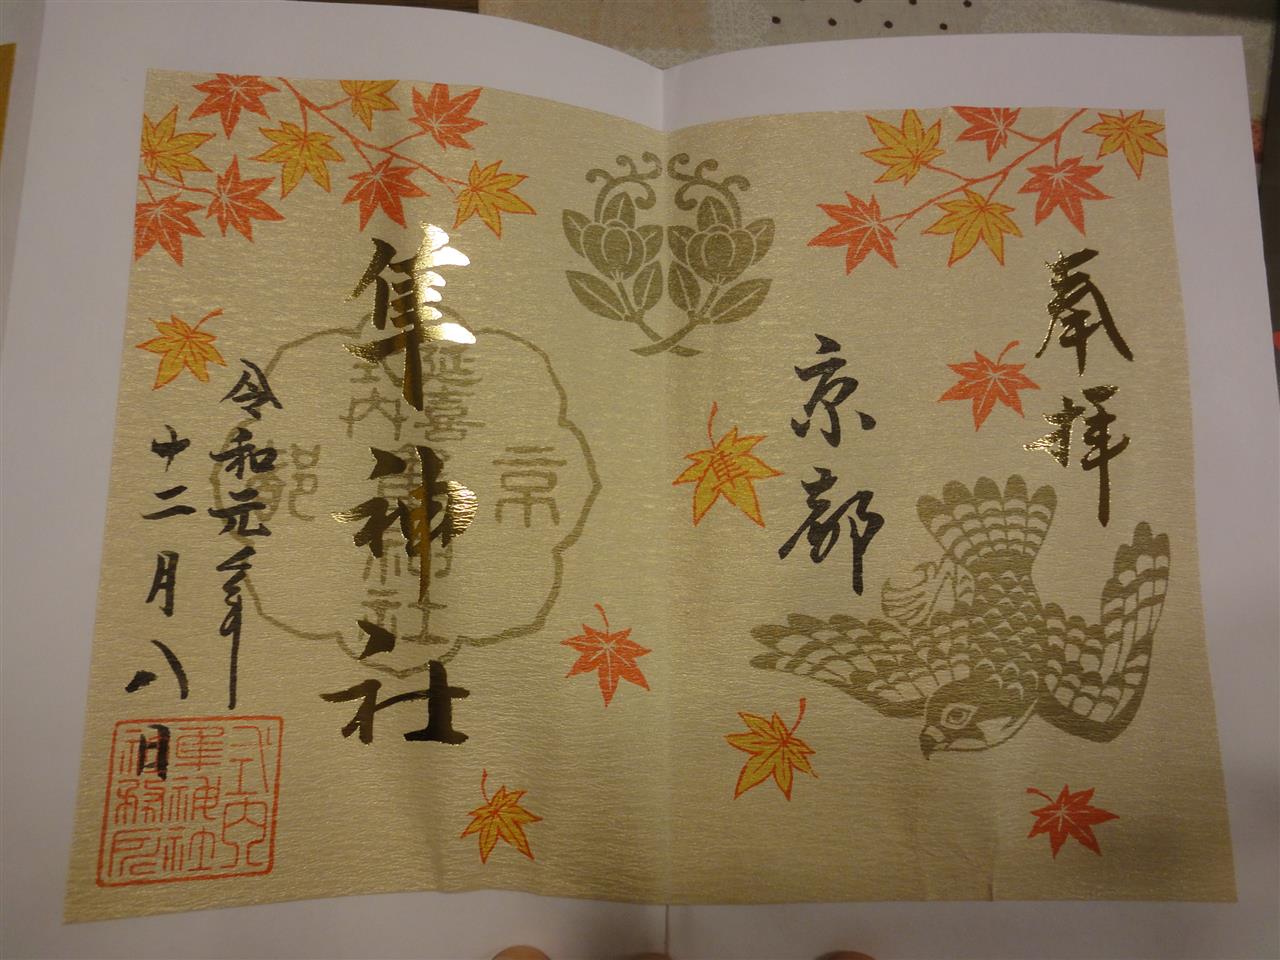 奉拝
京都
隼
隼神社
京都
延喜
式内
隼神社
令和元年
十二月八日
式内
隼神社
社務所